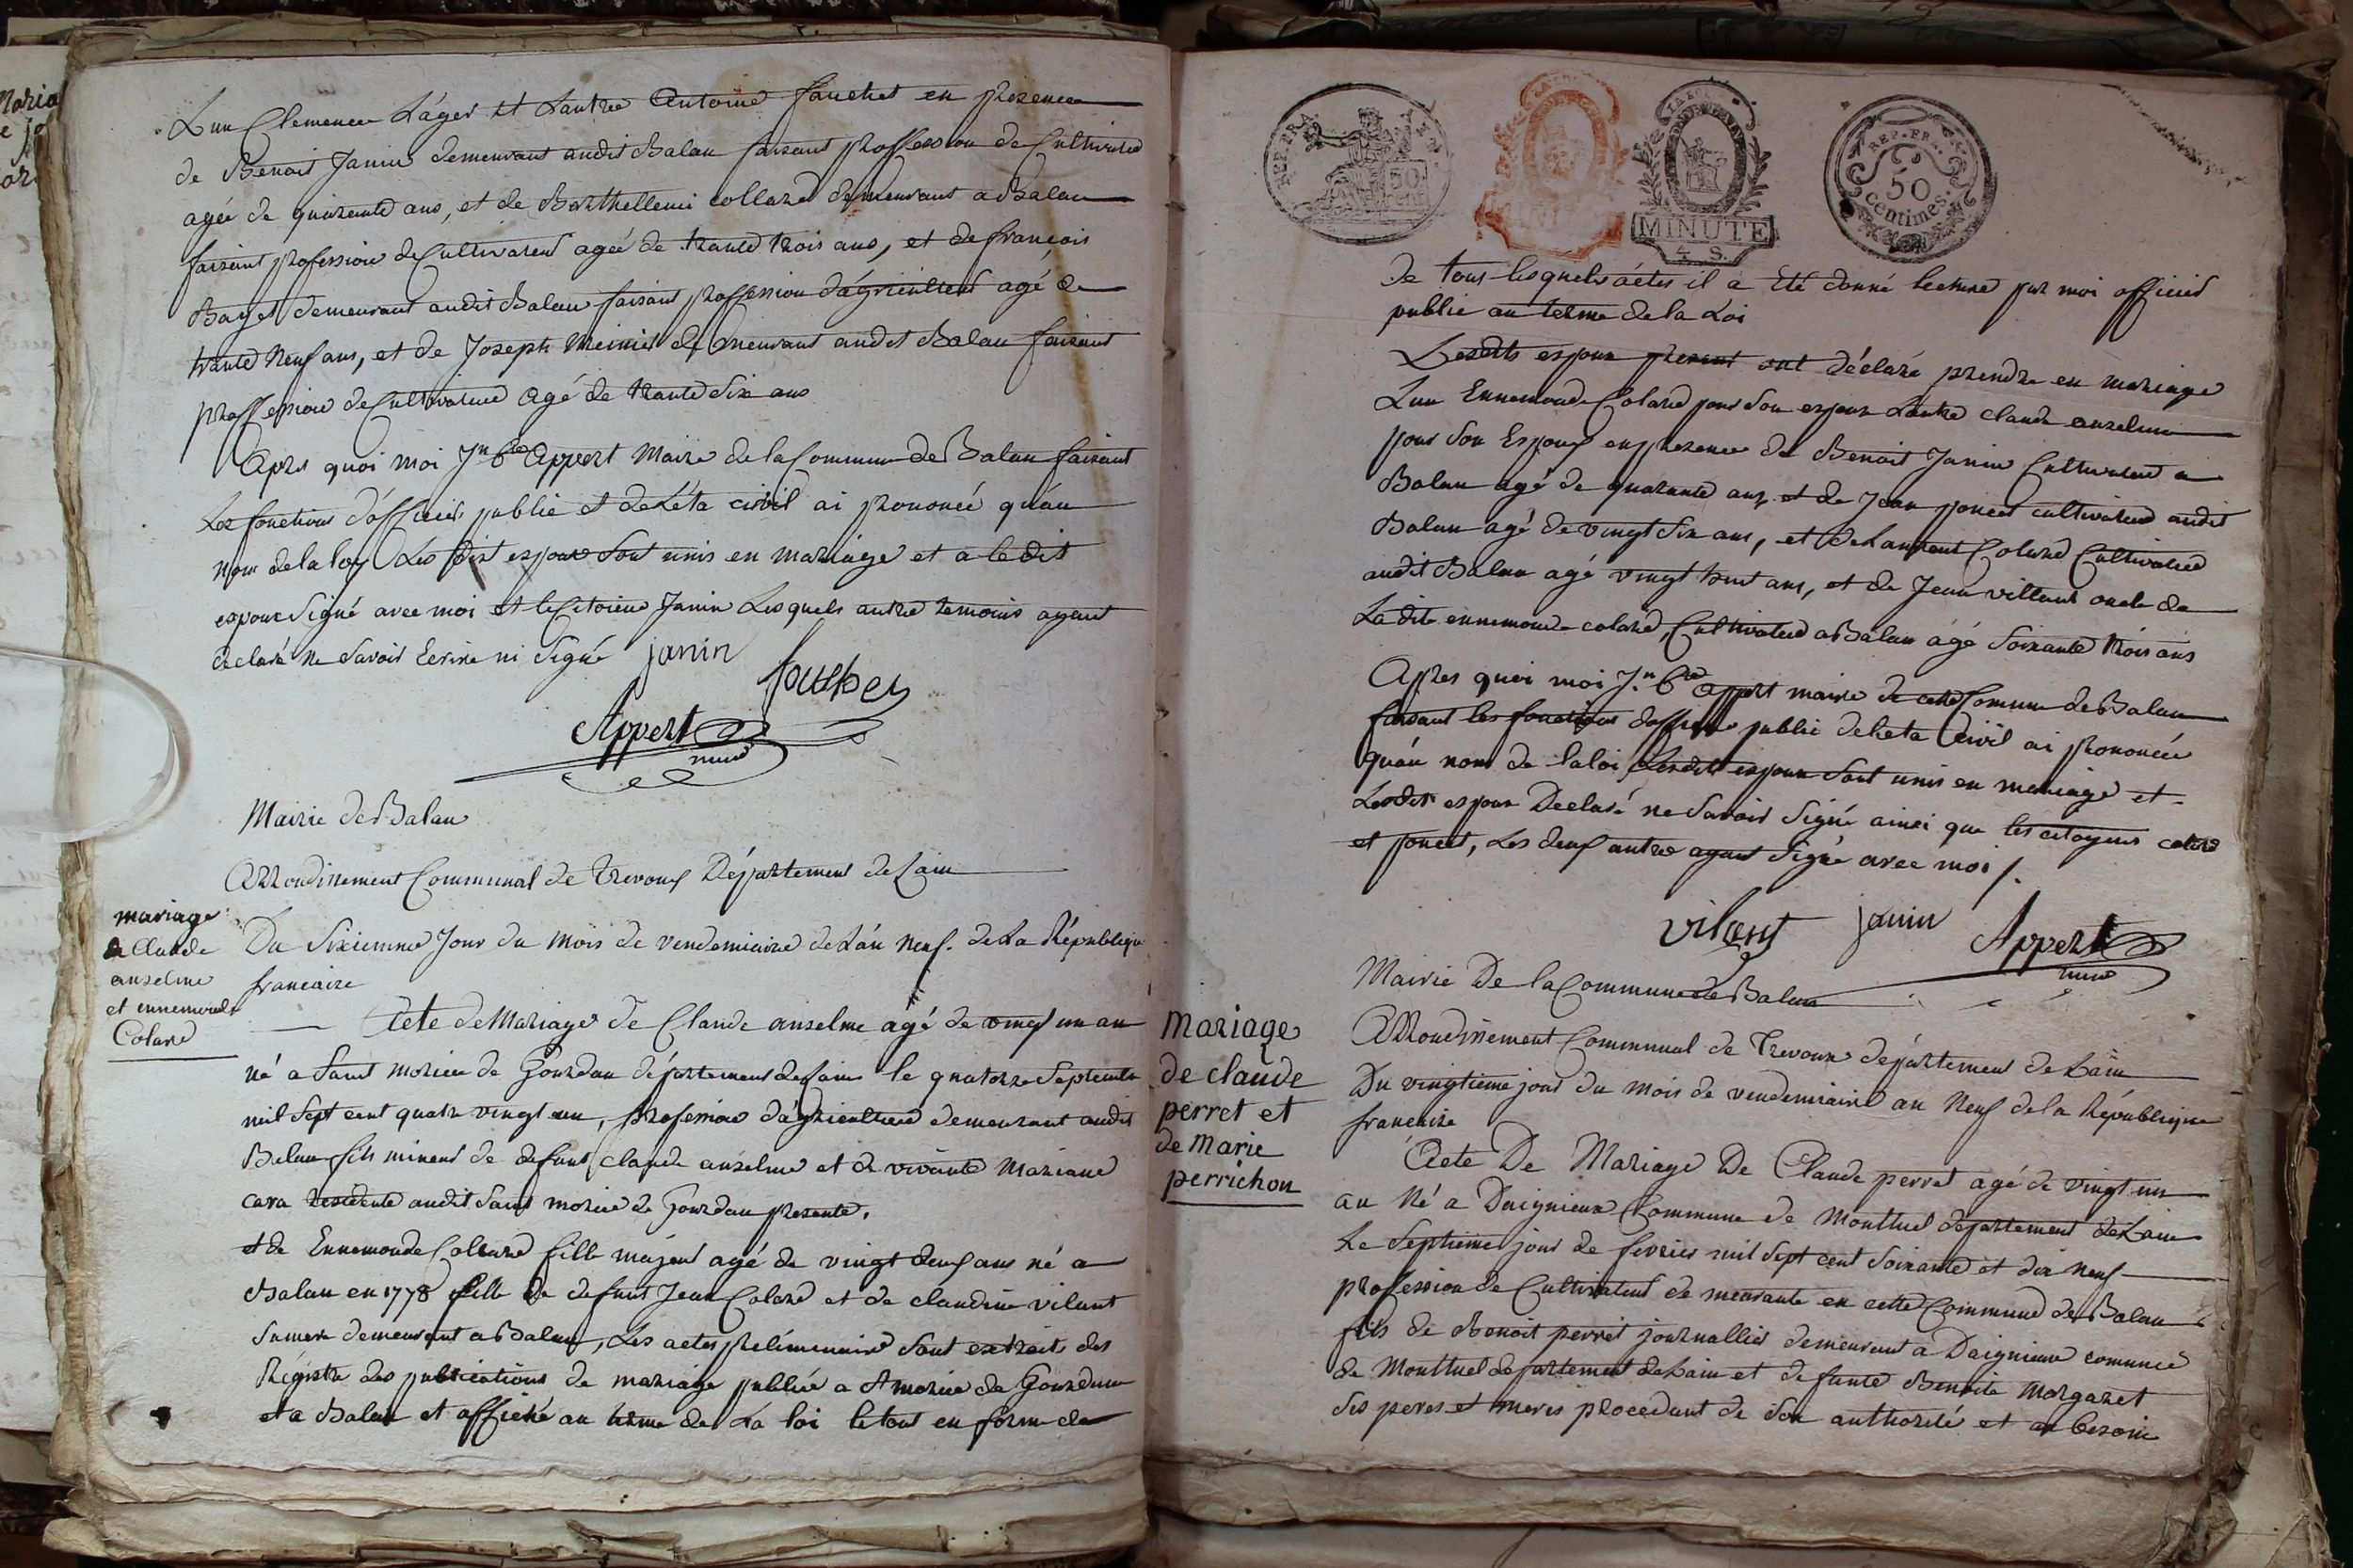 L'un Clemence Láger et Lautre Antoine fauchet en presence
de Benoit Janin demeurant audit Balan faisant proffession de Cultivateur
agée de quarante ans, et de Barthellemi collard demeurant a Balan
faisant profession de Cultivateur ageé de trante trois ans, et de françois
Bayet demeurant audit Balan faisant proffession dágriculteur agé de
trante Neuf ans, et de Joseph Meinier demeurant audit Balan faisant
proffession de Cultivateur agé de trante Six ans
Apres quoi moi Jn Bte Appert Maire de la Commune de Balan faisant
Les fonctions dófficier public et de Léta civil ai prononcé quáu
Nom de la loy Les dit espoux Sont unis en mariage et a le dit
espoux Signé avec moi et le Citoien Janin Lesquels autre temoins ayant
declaré Ne Savoir Ecrire ni Signé janin
fauchey
Appert
maire
Mairie de Balan
Arrondissement Communal de Trevoux Département de Lain
mariage
de Claude
anselme
et ennemonde
Colard
Du Sixiemme Jour du Mois de vendemiaire de Lán Neuf. de La République
francaise
Acte de Mariage de Claude anselme agé de vingt un an
Né a Saint Morice de Gourdan département de Lain le quatorze Septembre
mil Sept cent quatre vingt un, profession dágriculteur demeurant audit
Balan fils mineur de defunt Claude anselme et de vivante Mariane
cara residente audit Saint morice de Gourdan presente.
et de Ennemonde Collard fille májeur agé de vingt deux ans né a
Balan en 1778 fille de defunt Jean Colard et de claudine vilant
Sa mere demeurant a Balan, Les actes preliminaire Sont extraits des
Régistre des publications de mariage publiée a St morice de Gourdan
et a Balan et affiché au terme de La loi le tout en forme de
REP. FRA.
50
MINUTE
4 S.
REP. FR.
50
centimes.
De tous lesquels áctes il a Eté donné lecture par moi officier
public au terme de la Loi
Lesdits espoux present ont Déclaré prendre en mariage
Lun Ennemonde Colard pour Son espoux Lautre claude anselme
pour Son Espoux en presence de Benoit Janin Cultivateur a
Balan agé de quarante ans, et de Jean poncet cultivateur audit
Balan agé de vingt Six ans, et de Laurent Colard Cultivateur
audit Balan agé vingt huit ans, et de Jean villant oncle de
La dite ennemonde colard, Cultivateur a Balan ágé Soixante trois ans
Apres quoi moi Jn Bte appert maire de cette Commune de Balan
faisant les fonctions dofficier public de leta Civil ai prononcée
quáu nom de la loi Lesdits espoux Sont unis en mariage et
Lesdits espoux Declaré ne Savoir Signé ainsi que les citoyens colard
et poncet, Les deux autre ayant Signé avec moi /.
vilant janin Appert
maire
Mairie De la Commune de Balan
Arrondissement Communal de Trevoux département de Lain
mariage
de claude
perret et
de Marie
perrichon
Du vingtieme jour du mois de vendemiaire an Neuf de la République
francaise
Acte De Mariage De Claude perret agé de vingt un
an Né a Daignieux Commune de Montluel département de Lain
Le Septieme jour de fevrier mil Sept cent Soixante et dix neuf
profession de Cultivateur demeurante en cette Commune de Balan
fils de Benoit perret journallier demeurant a Daignieux commune
de Montluel département de Lain et defunte Benoite Margaret
Ses peres et meres procedant de Son authorité et au besoin